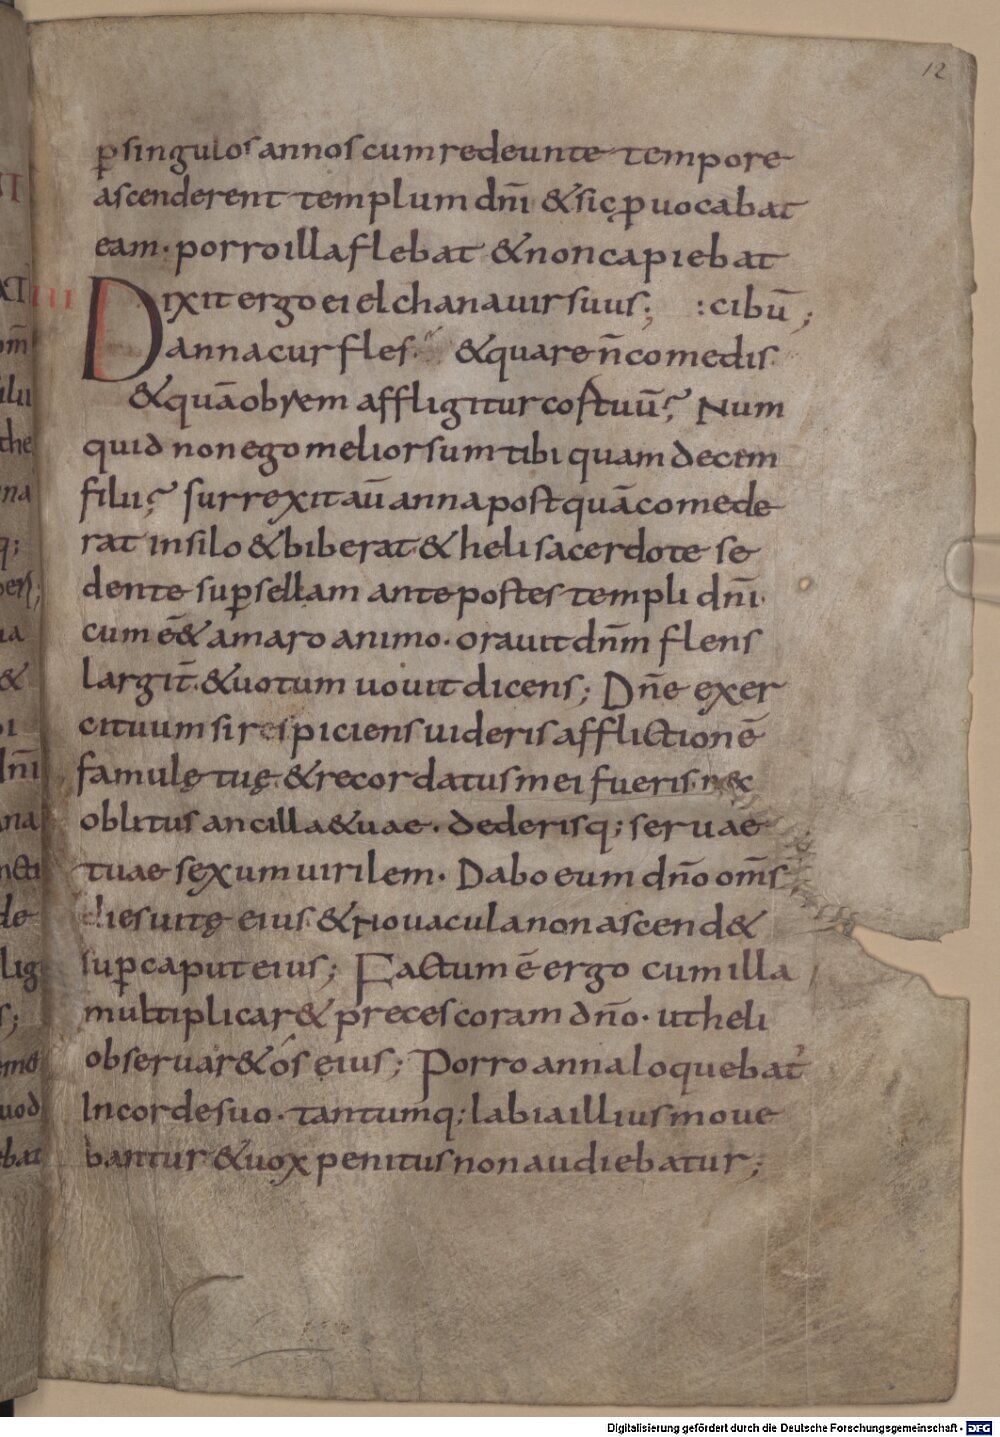 12
p̱singulos annos cum redeunte tempore
ascenderent templum dn̄i &sic ꝓuocabat
eam· porro illa flebat &non capiebat
III Dixit ergo ei elchana uir suus; :cibū;
anna cur fles· &quare n̄ comedis·
&quāobrem affligitur cor tuū? Num
quid non ego melior sum tibi quam decem
filii? surrexit aū anna postquā comede
rat insilo &biberat &heli sacerdote se
dente suꝑ sellam ante postes templi dn̄i·
cum ēē& amaro animo· orauit dn̄m flens
largit̄· &uotum uouit dicens; Dn̄e exer
cituum si respiciens uideris afflictionē
famulę tuę &recordatus mei fueris· nec
oblitus ancillae &uae· dederisq; seruae
tuae sexum uirilem· Dabo eum dn̄o om̄s
dies uitę eius &nouacula non ascend&
suꝑ caput eius; Factum ē ergo cum illa
multiplicar& preces coram dn̄o· ut heli
obseruar& ós eius; Porro anna loquebat᾽
In corde suo· tantumq; labia illius moue
bantur &uox penitus non audiebatur;
Digitalisierung gefördert durch die Deutsche Forschungsgemeinschaft - DFG